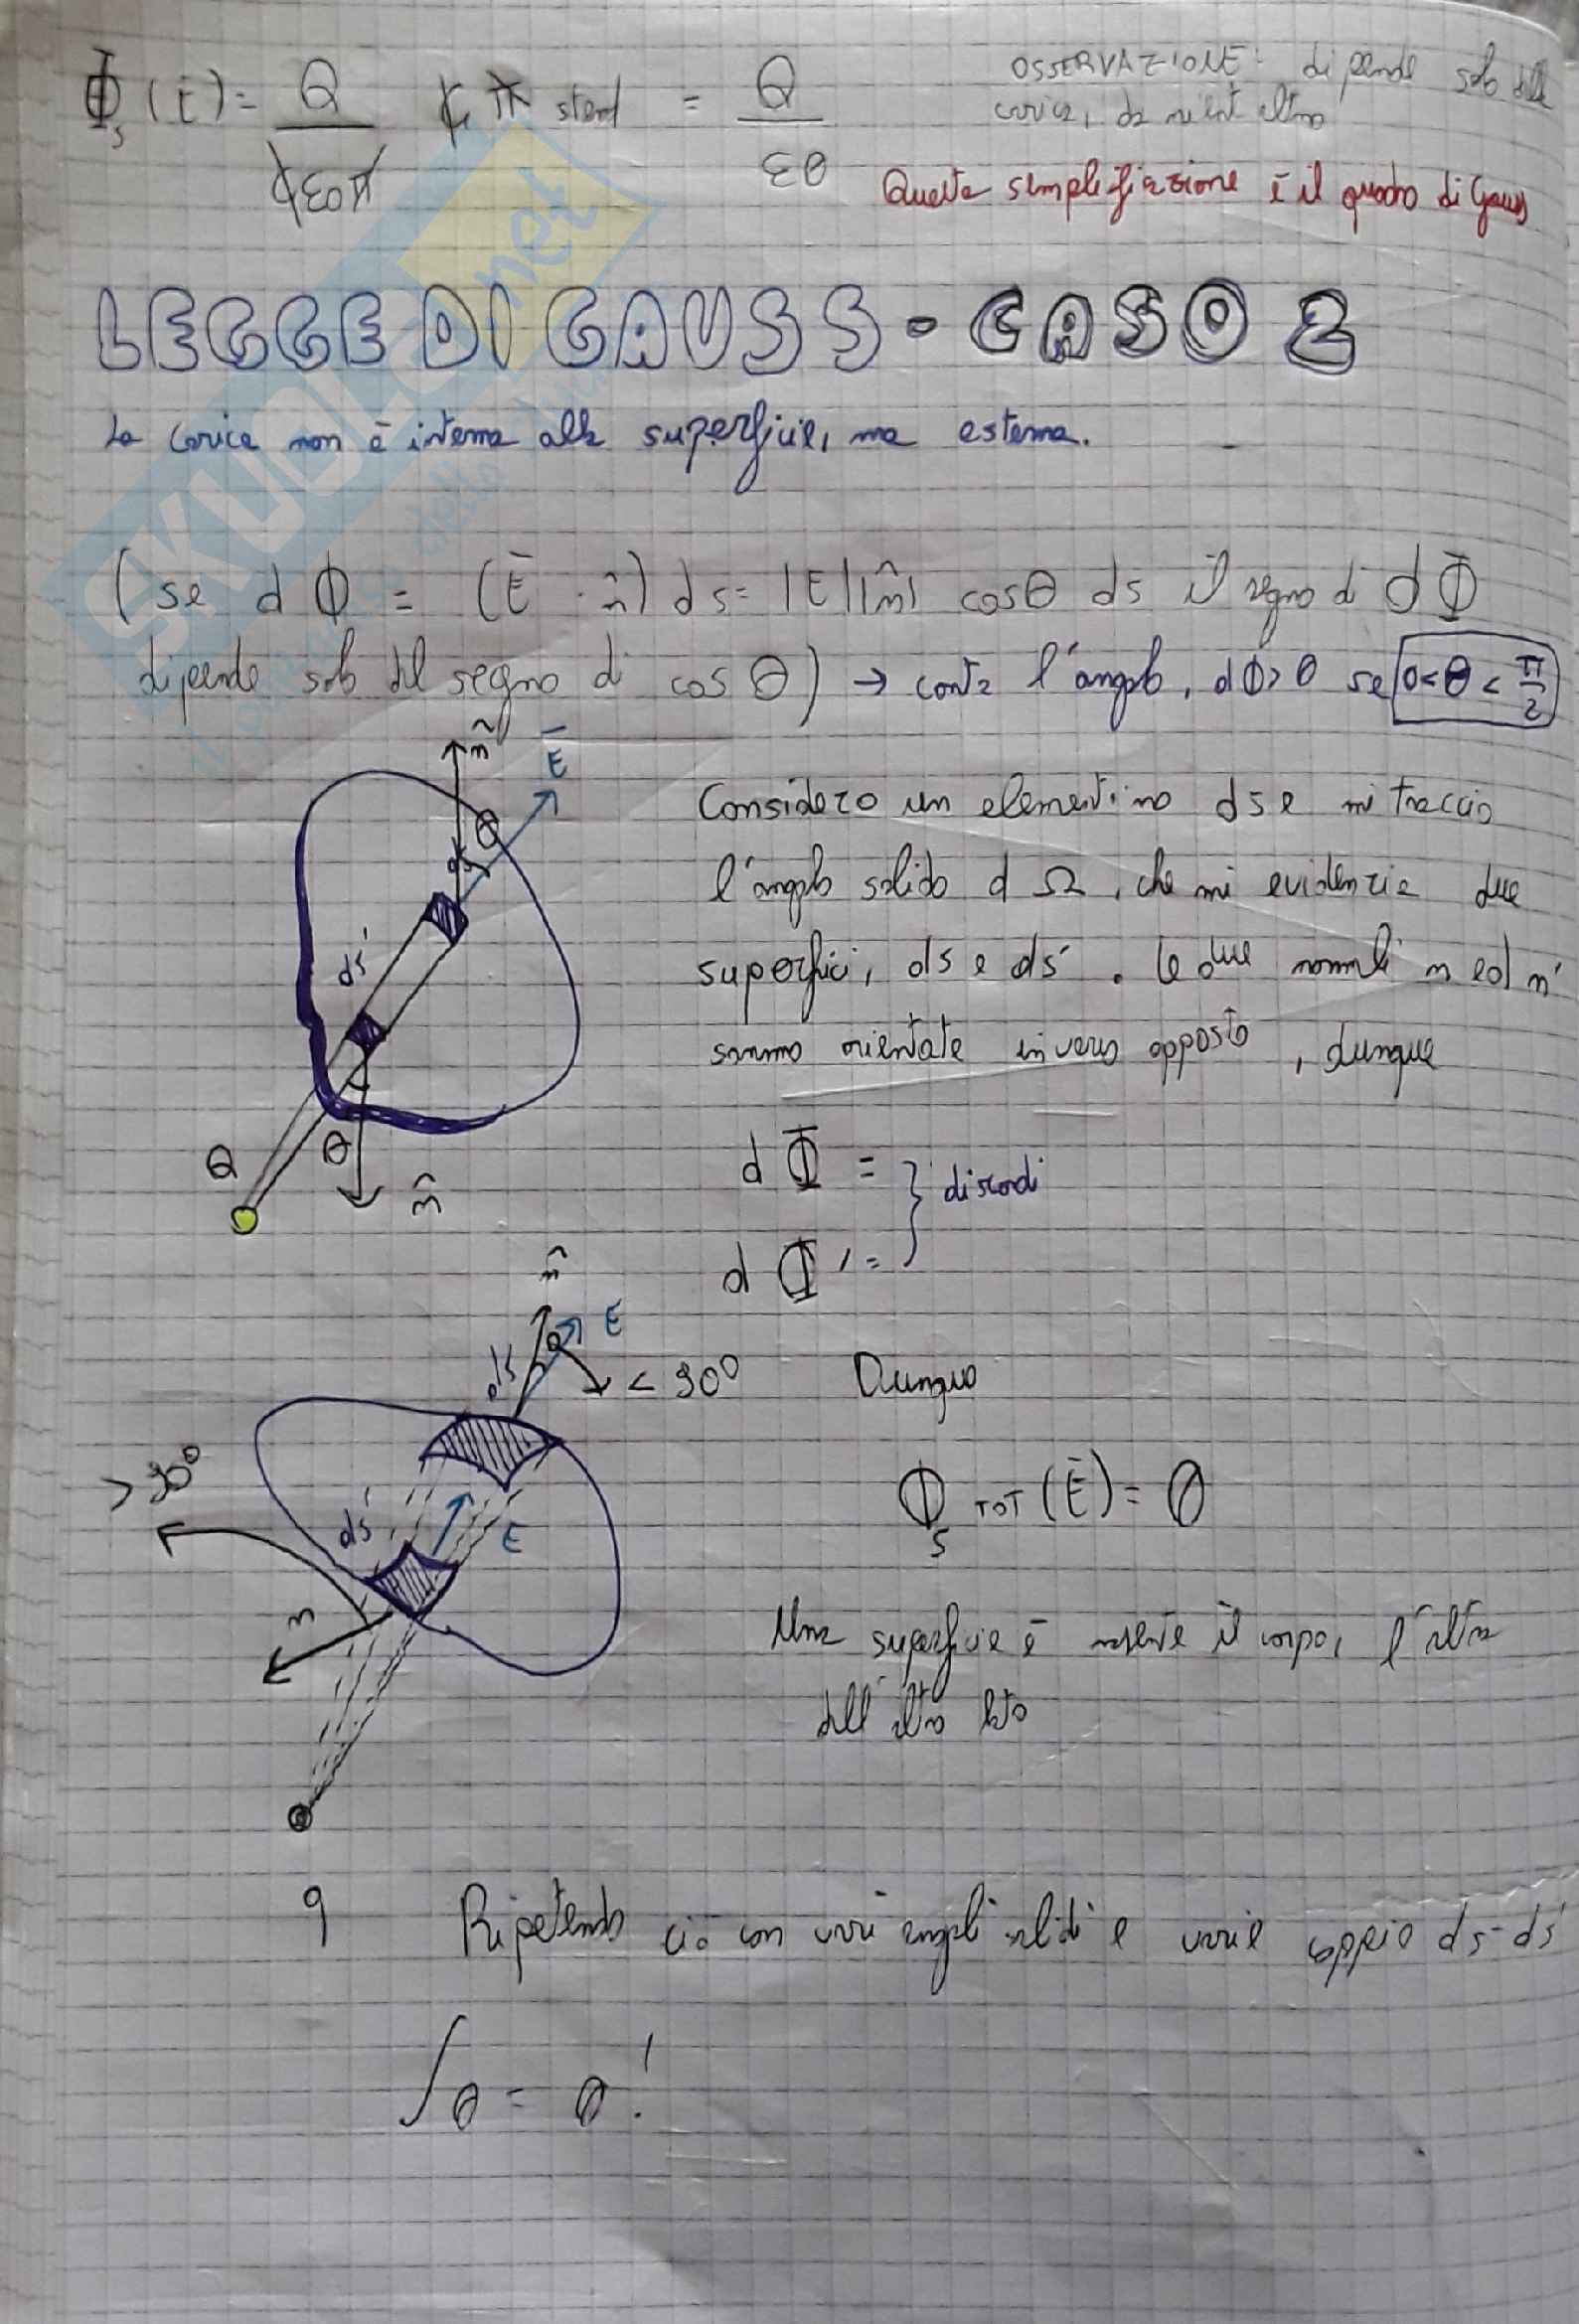 Φs (Ē) = Q / 4ε0π 4 π sterd = Q / ε0
OSSERVAZIONE: dipende solo dalla
carica, da nient'altro
Questa semplificazione è il quadro di Gauss
LEGGE DI GAUSS - CASO 2
La carica non è interna alla superficie, ma esterna.
(se dΦ = (Ē · n̂) ds = |E||n̂| cosθ ds il segno di dΦ
dipende solo dal segno di cos θ) → conta l'angolo, dΦ > 0 se 0 < θ < π/2
n̂ Ē
θ
ds
ds'
θ
Q
n̂
Considero un elementino ds e mi traccio
l'angolo solido dΩ, che mi evidenzia due
superfici, ds e ds'. Le due normali n ed n'
saranno orientate in verso opposto, dunque
dΦ =
} discordi
dΦ' =
n̂
E
θ
ds
< 90°
> 90°
ds'
E
n
Dunque
Φs TOT (Ē) = 0
Una superficie è verso il corpo, l'altra
dall'altro lato
q
Ripetendo ciò con vari angoli solidi e varie coppie ds-ds'
∫0 = 0!
SKUOLA.net